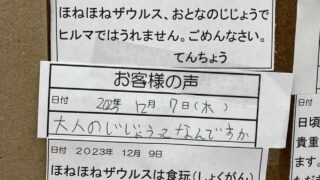 ほねほねザウルス、おとなのじじょうで
ヒルマではうれません。ごめんなさい。
てんちょう
お客様の声
日付 2023年 12月 7日(木)
大人のじじょうってなんですか
日付 2023年 12月 9日
ほねほねザウルスは食玩(しょくがん)
日付
日頃
貴重
ます